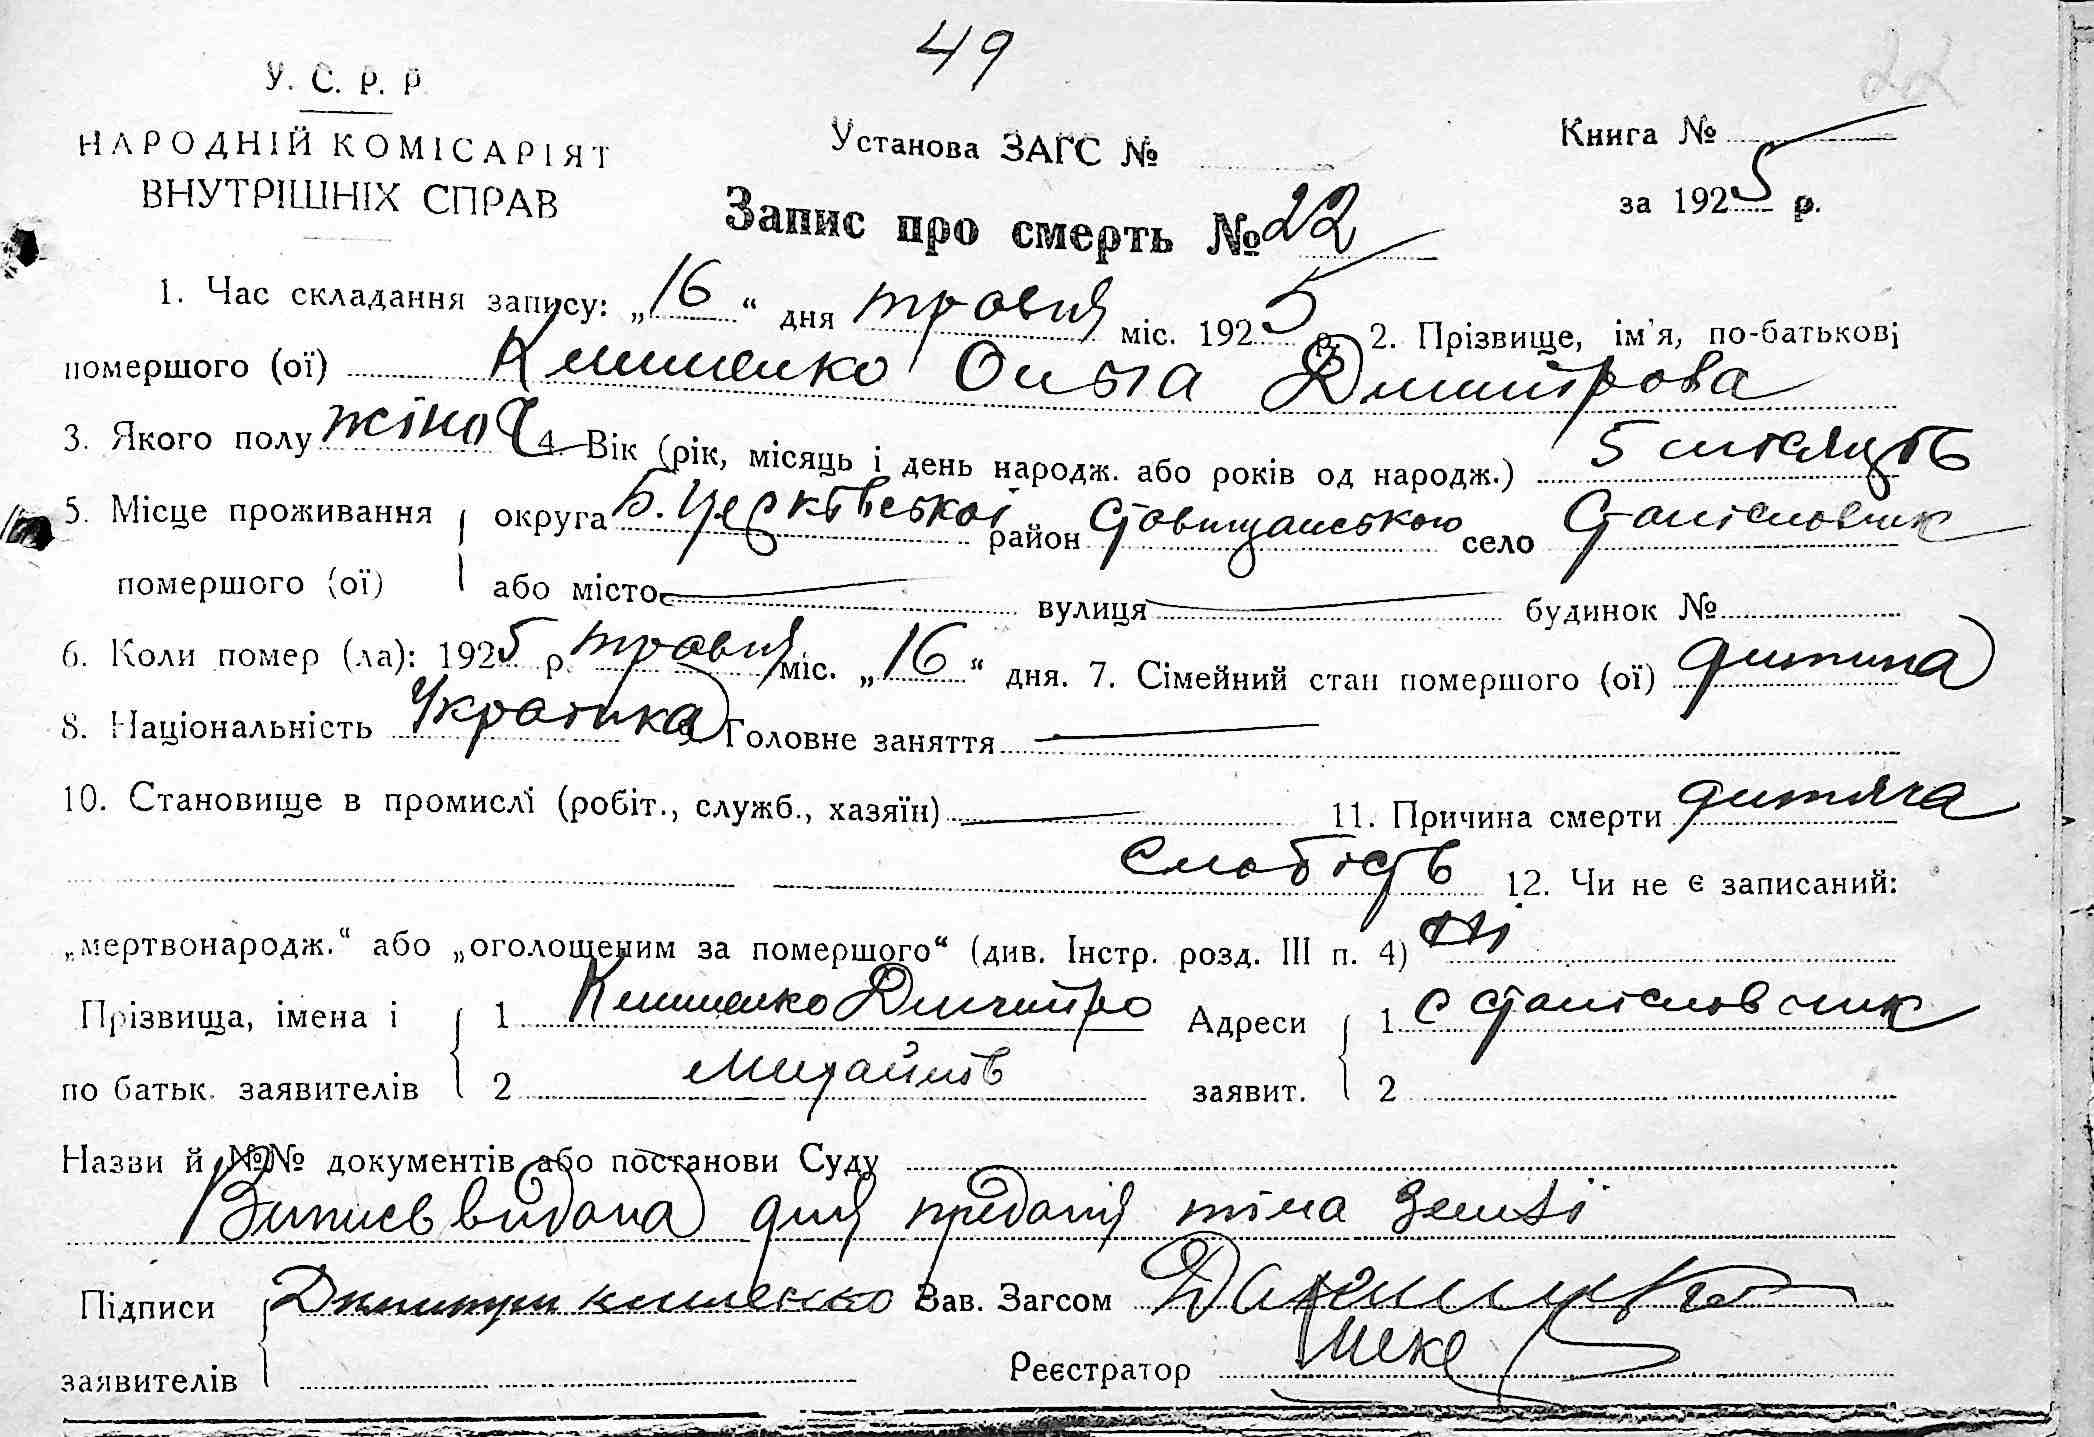 49
22
У. С. Р. Р
НАРОДНІЙ КОМІСАРІЯТ
ВНУТРІШНІХ СПРАВ
Установа ЗАГС №
Книга №
за 1925 р.
Запис про смерть № 22
1. Час складання запису: „16“ дня травня міс. 1925 р. 2. Прізвище, ім'я, по-батькові
помершого (ої) Клименко Ольга Дмитрова
3. Якого полу жіноч 4. Вік (рік, місяць і день народж. або років од народж.) 5 місяців
5. Місце проживання округа Б. Церківської район Ставищанського село Станіславчик
помершого (ої) або місто вулиця будинок №
6. Коли помер (ла): 1925 р. травня міс. „16“ дня. 7. Сімейний стан помершого (ої) дитина
8. Національність Українка Головне заняття
10. Становище в промислі (робіт., служб., хазяїн) 11. Причина смерти дитяча
слабість 12. Чи не є записаний:
„мертвонародж.“ або „оголошеним за помершого“ (див. Інстр. розд. III п. 4) Ні
Прізвища, імена і 1 Клименко Дмитро Адреси 1 с Станіславчик
по батьк. заявителів 2 Михайлів заявит. 2
Назви й №№ документів або постанови Суду
Випись видана для предання тіла землі
Підписи Дмитри клименко Зав. Загсом
заявителів Реєстратор